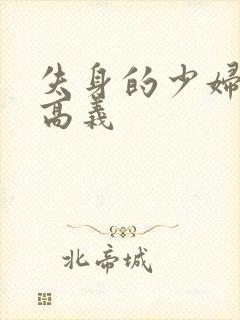 失身的少婦
高義
北帝城